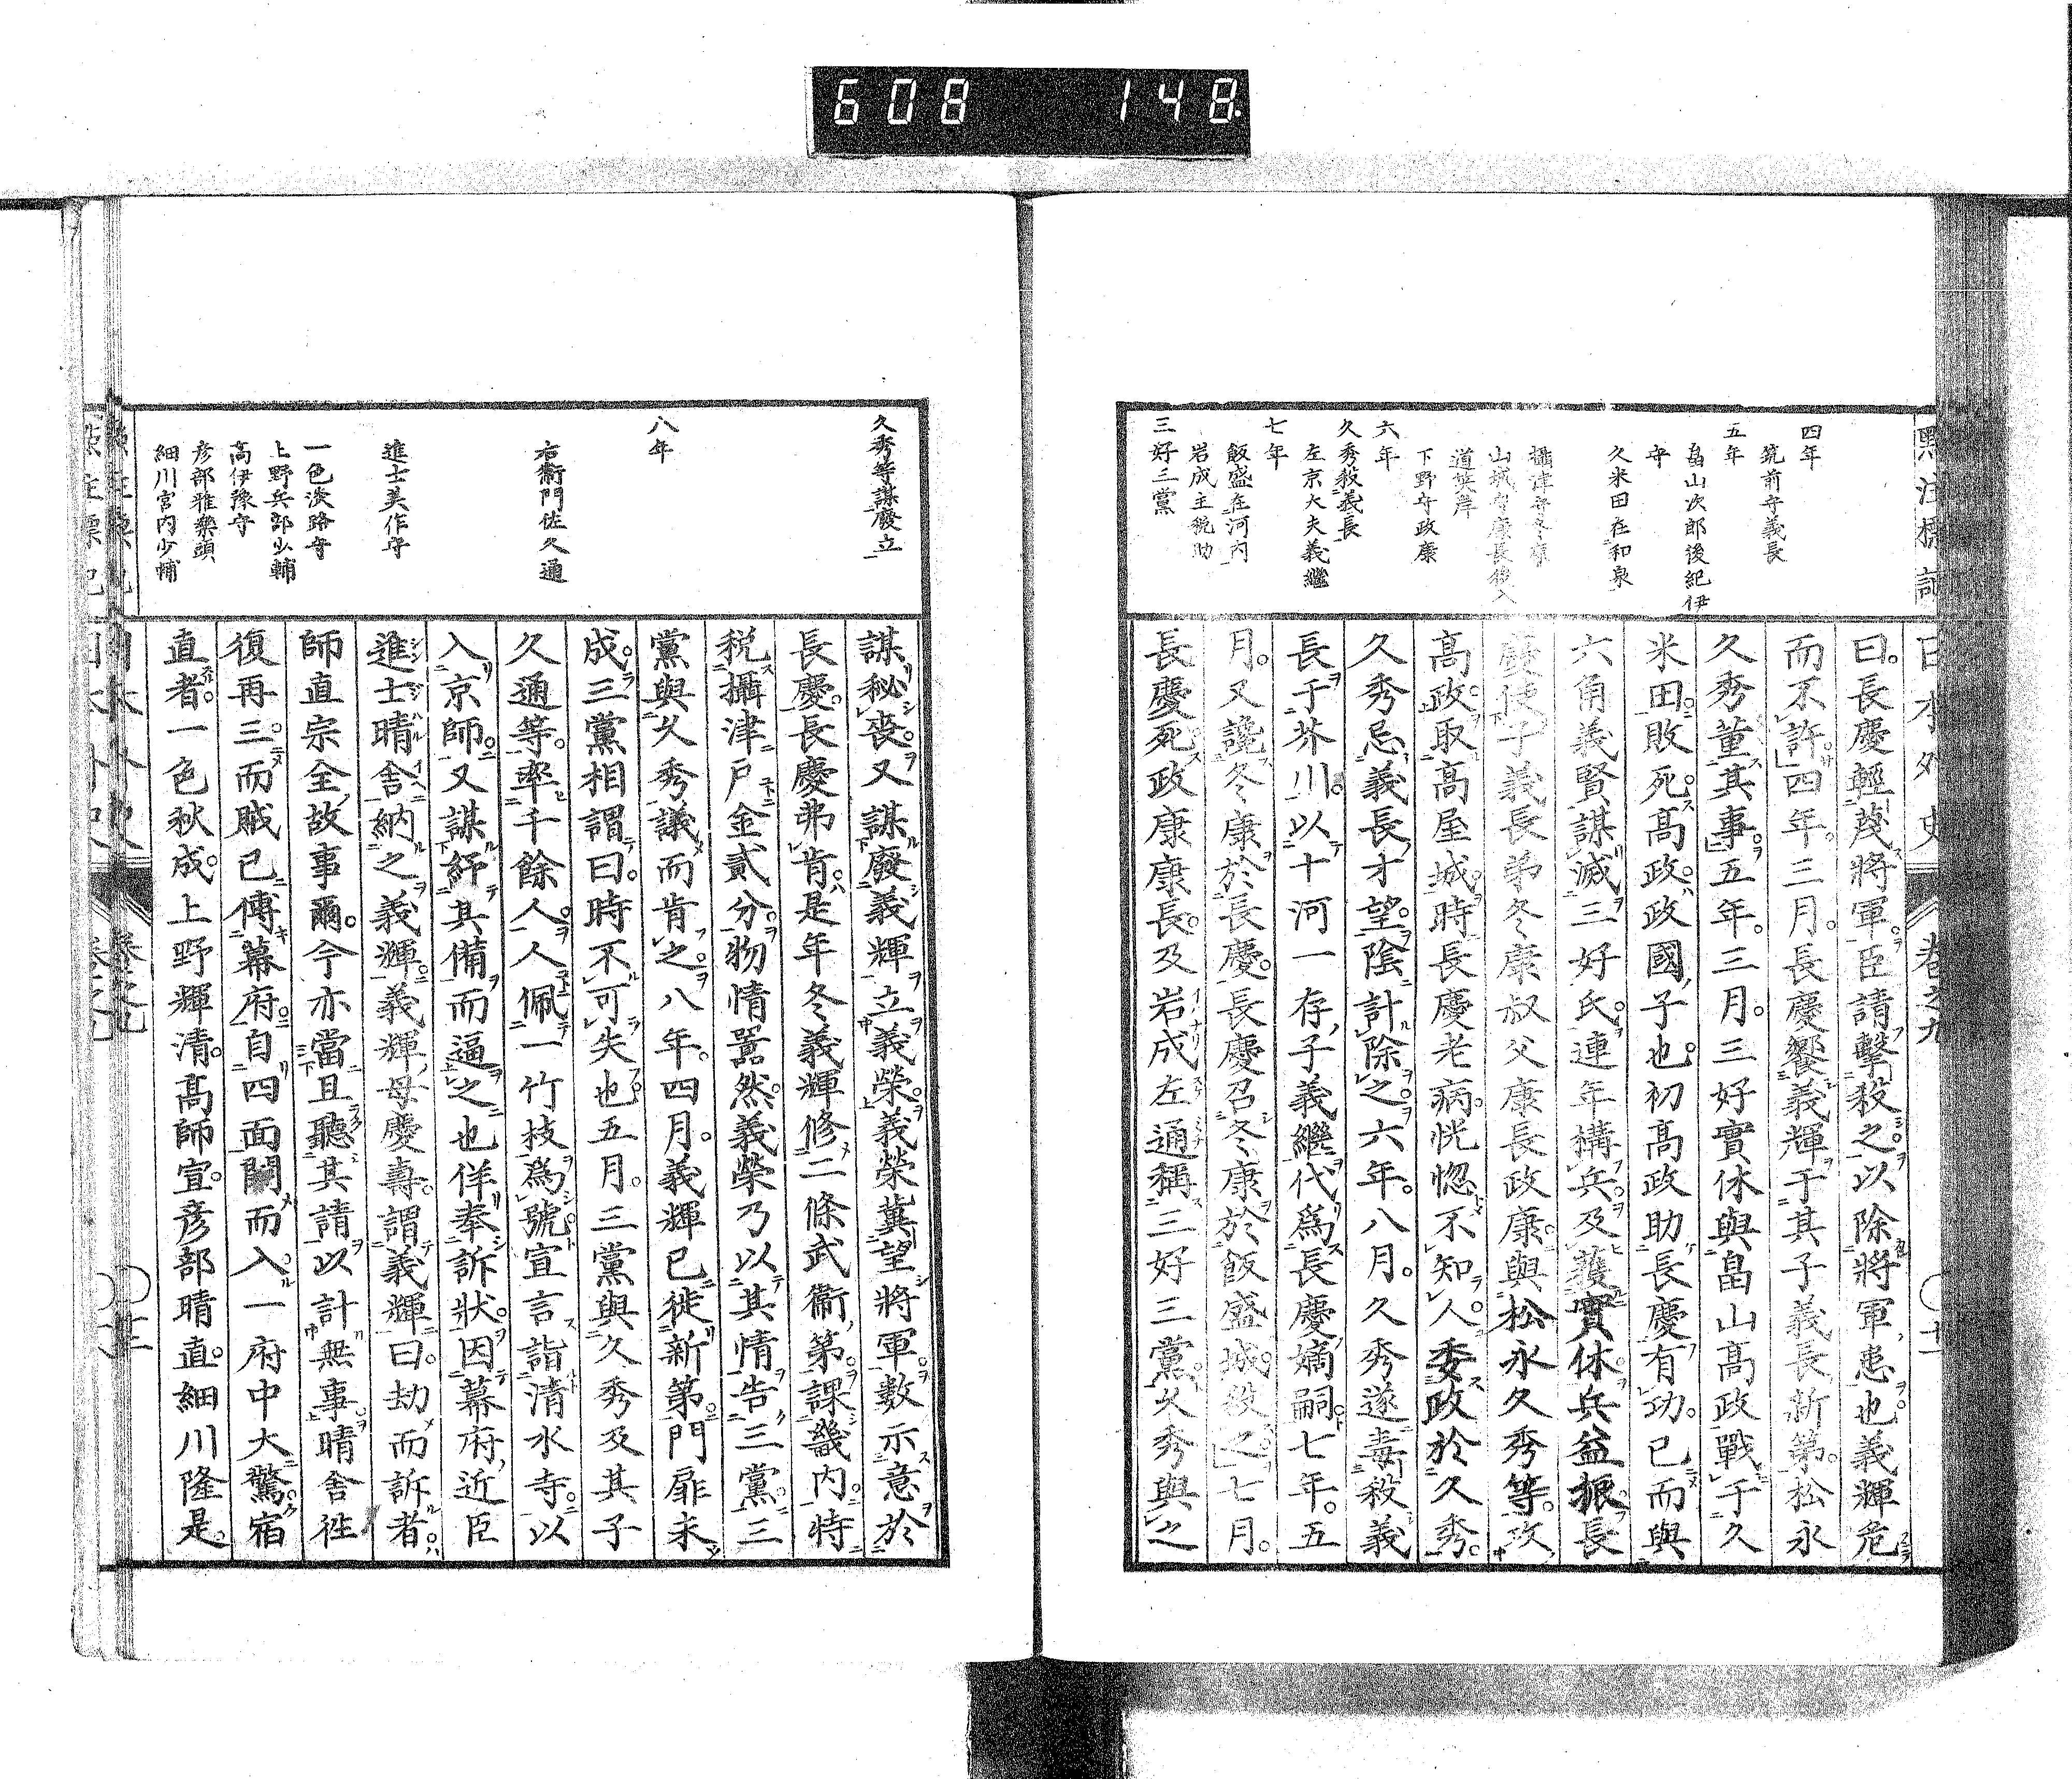 608 148
點注標記 日本外史 卷之九
四年
筑前守義長
五年
畠山次郎後紀伊
守
久米田在和泉
攝津守冬康
山城守康長後入
道笑岸
下野守政康
六年
久秀殺義長
左京大夫義繼
七年
飯盛在河内
岩成主税助
三好三黨
曰。長慶輕蔑將軍。臣請擊殺之。以除將軍患也。義輝危
而不許。四年。三月。長慶饗義輝于其子義長新第。松永
久秀董其事。五年。三月。三好實休與畠山高政戰于久
米田。敗死。高政。政國子也。初高政助長慶有功。已而與
六角義賢謀滅三好氏。連年構兵。及獲實休。兵益振。長
慶使子義長弟冬康叔父康長政康。與松永久秀等。攻
高政。取高屋城。時長慶老病。恍惚不知人。委政於久秀。
久秀忌義長才望。陰計除之。六年。八月。久秀遂毒殺義
長于芥川。以十河一存子義繼代爲長慶嫡嗣。七年。五
月。又讒冬康於長慶。長慶召冬康於飯盛城殺之。七月。
長慶死。政康康長。及岩成左通稱三好三黨。久秀與之
久秀等謀廢立
八年
右衞門佐久通
進士美作守
一色淡路守
上野兵部少輔
高伊豫守
彦部雅樂頭
細川宮内少輔
謀秘喪。又謀廢義輝立義榮。義榮冀望將軍。數示意於
長慶。長慶弗肯。是年冬義輝修二條武衞第。課畿内。特
税攝津戸金貳分。物情囂然。義榮乃以其情告三黨。三
黨與久秀議而肯之。八年。四月。義輝已徙新第。門扉未
成。三黨相謂曰。時不可失也。五月。三黨與久秀及其子
久通等。率千餘人。人佩一竹枝爲號。宣言詣清水寺。以
入京師。又謀紓其備而逼之也。佯奉訴狀。因幕府近臣
進士晴舍納之義輝。義輝母慶壽。謂義輝曰。劫而訴者。
師直宗全故事爾。今亦當且聽其請以計無事。晴舍往
復再三。而賊已傅幕府。自四面鬨而入。一府中大驚。宿
直者。一色秋成。上野輝清。高師宣。彦部晴直。細川隆是。